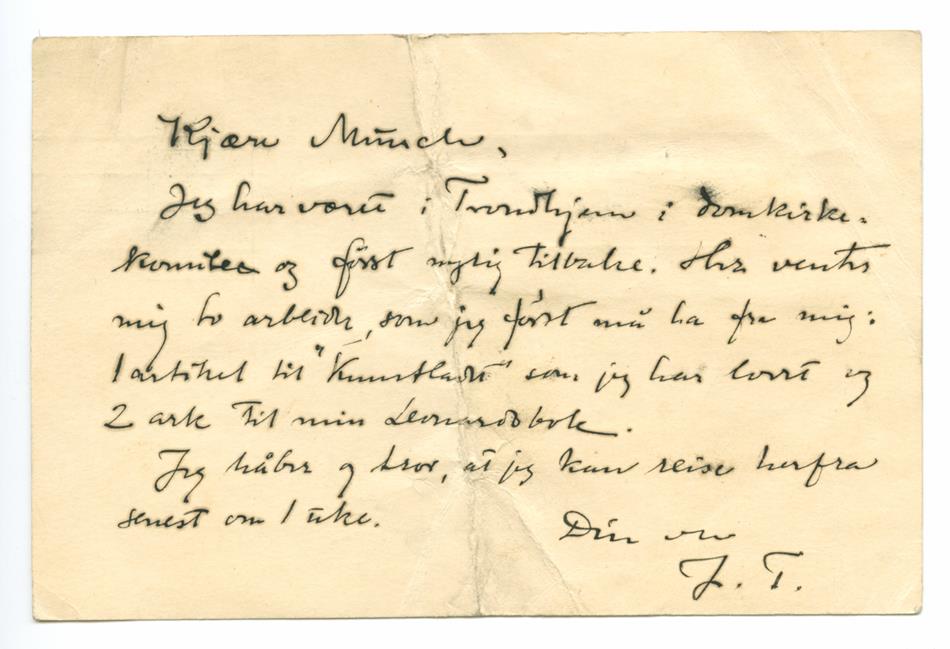 Kjære Munch,
Jeg har været i Trondhjem i domkirke-
komiteen og först nylig tilbake. Her ventes
mig to arbeider, som jeg först må ha fra mig:
1 artikel til "Kunstbladet" som jeg har lovet og
2 ark til min Leonardobok.
Jeg håber og tror, at jeg kan reise herfra
senest om 1 uke.
Din ven
J. T.